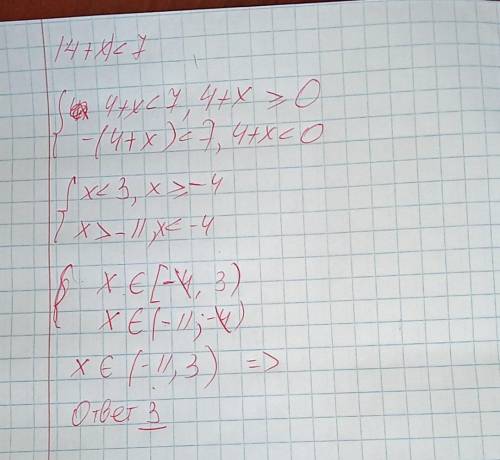 |4+x|<7
{ 4+x<7, 4+x ≥ 0
-(4+x)<7, 4+x<0
{ x<3, x ≥ -4
x > -11, x< -4
{ x ∈ [-4, 3)
x ∈ (-11; -4)
x ∈ (-11, 3) =>
Ответ 3